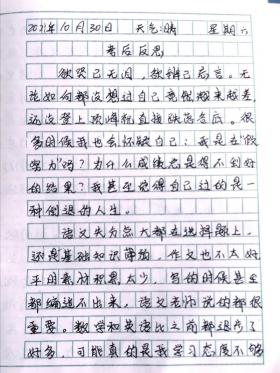 2021年10月30日 天气:晴 星期六
考后反思
欲哭已无泪，欲辩已忘言。无
论如何都没想过自己竟然越来越差，
还没登上顶峰就直接跌落谷底。很
多时候我也会怀疑自己：我是在“假
努力”吗？为什么成绩总是得不到好
的结果？我甚至觉得自己过的是一
种倒退的人生。
语文失分点大都在选择题上，
还是基础知识薄弱，作文也不太好，
平时素材积累太少，写的时候甚至
都编造不出来，语文老师说的都很
重要。数学和英语比之前都退步了
好多，可能真的是我学习态度不够